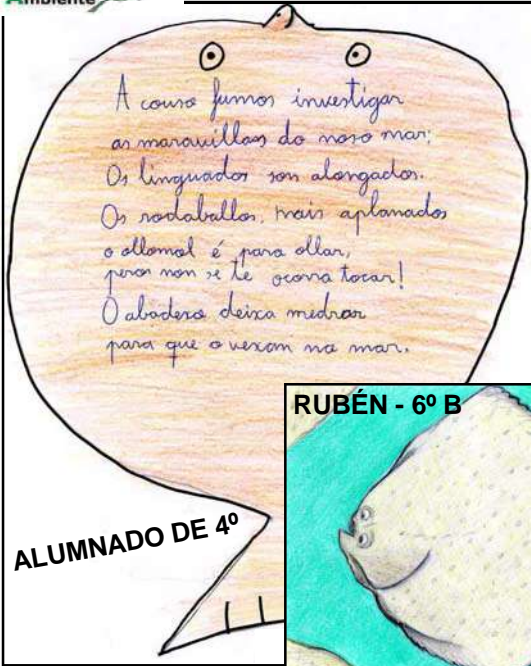 Ambiente
A couso fumos investigar
as maravillas do noso mar;
Os linguados son alongados.
Os rodaballos, mais aplanados
o ollomol é para ollar,
peros non se te ocorra tocar!
O abadexo deixa medrar
para que o vexam na mar.
RUBÉN - 6º B
ALUMNADO DE 4º